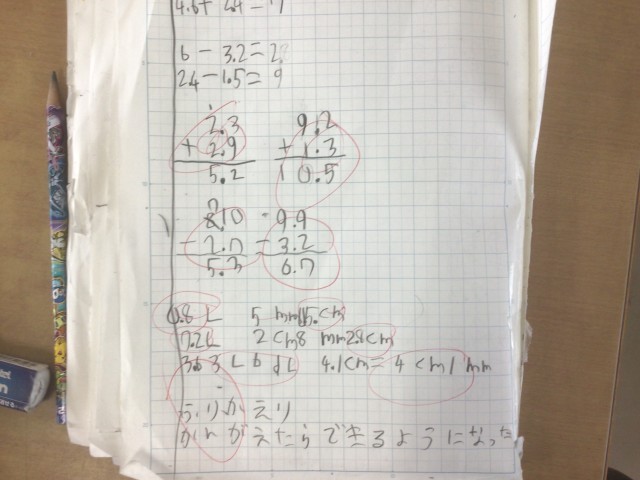 6-3.2=2.
24-1.5=9
2.3 9.2
+2.9 +1.3
5.2 10.5
8.10 9.9
-2.7 -3.2
5.3 6.7
0.8L 5mm 0.5cm
7.2L 2cm8mm 2.8cm
3.6 3L6dL 4.1cm=4cm1mm
ふりかえり
かんがえたらできるようになった